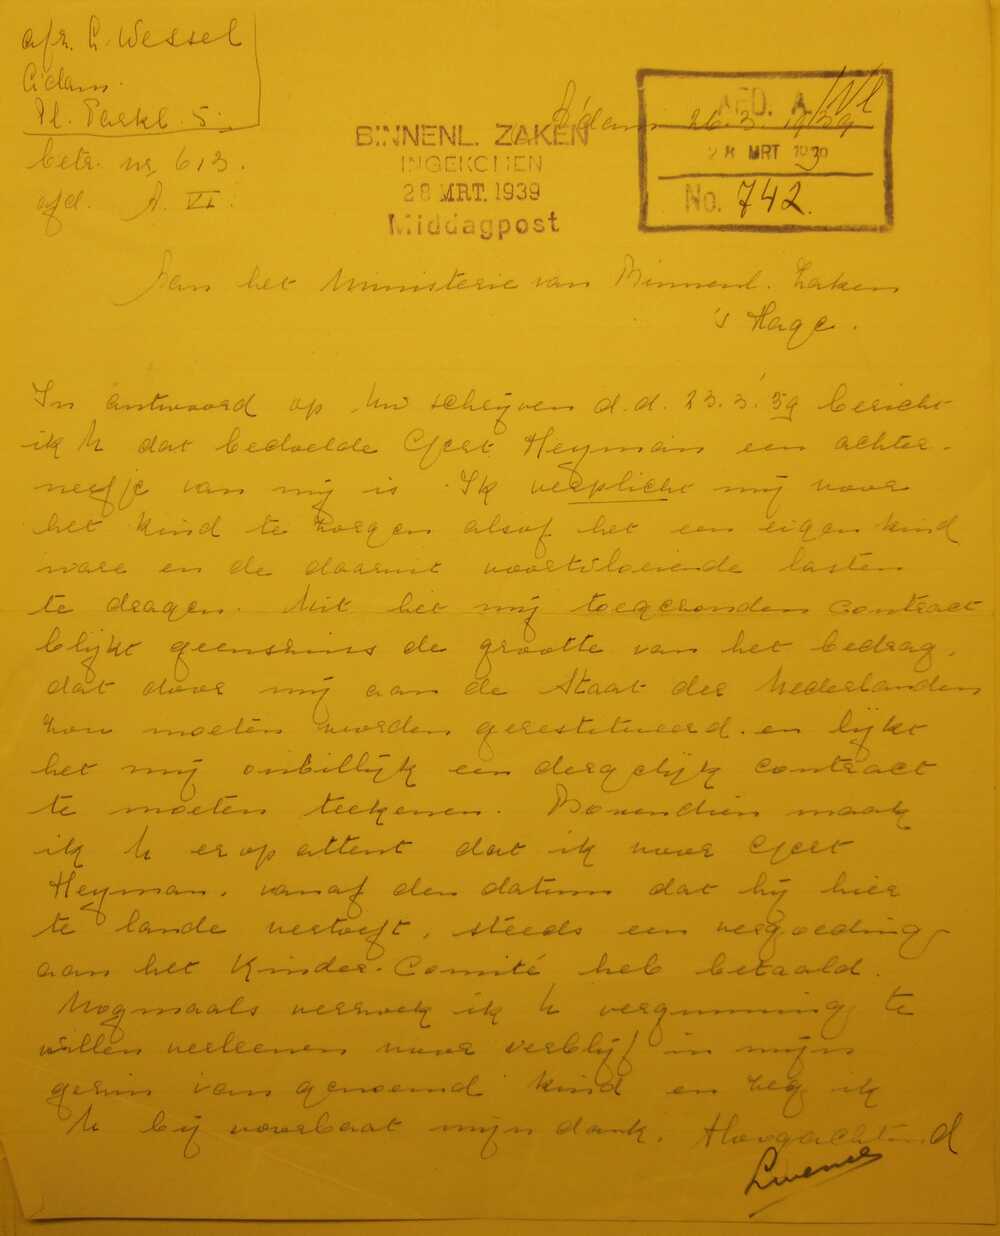 afz. L. Wessel
A'dam.
Pl. Parkl. 5.
betr. nr. 613.
afd. A. VI.
A'dam 26.3.1939
BINNENL. ZAKEN
INGEKOMEN
28 MRT. 1939
Middagpost
AFD. A
28 MRT 1939
No. 742.
Aan het Ministerie van Binnenl. Zaken
's Hage.
In antwoord op Uw schrijven d.d. 23.3.'39 bericht
ik U dat bedoelde Gert Heyman een achter-
neefje van mij is. Ik verplicht mij voor
het kind te zorgen alsof het een eigen kind
ware en de daaruit voortvloeiende lasten
te dragen. Uit het mij toegezonden contract
blijkt geenszins de grootte van het bedrag,
dat door mij aan de Staat der Nederlanden
zou moeten worden gerestitueerd en lijkt
het mij onbillijk een dergelijk contract
te moeten teekenen. Bovendien maak
ik U erop attent dat ik voor Gert
Heyman, vanaf den datum dat hij hier
te lande vertoeft, steeds een vergoeding
aan het Kinder-Comité heb betaald.
Nogmaals verzoek ik U vergunning te
willen verleenen voor verblijf in mijn
gezin van genoemd kind en zeg ik
U bij voorbaat mijn dank. Hoogachtend